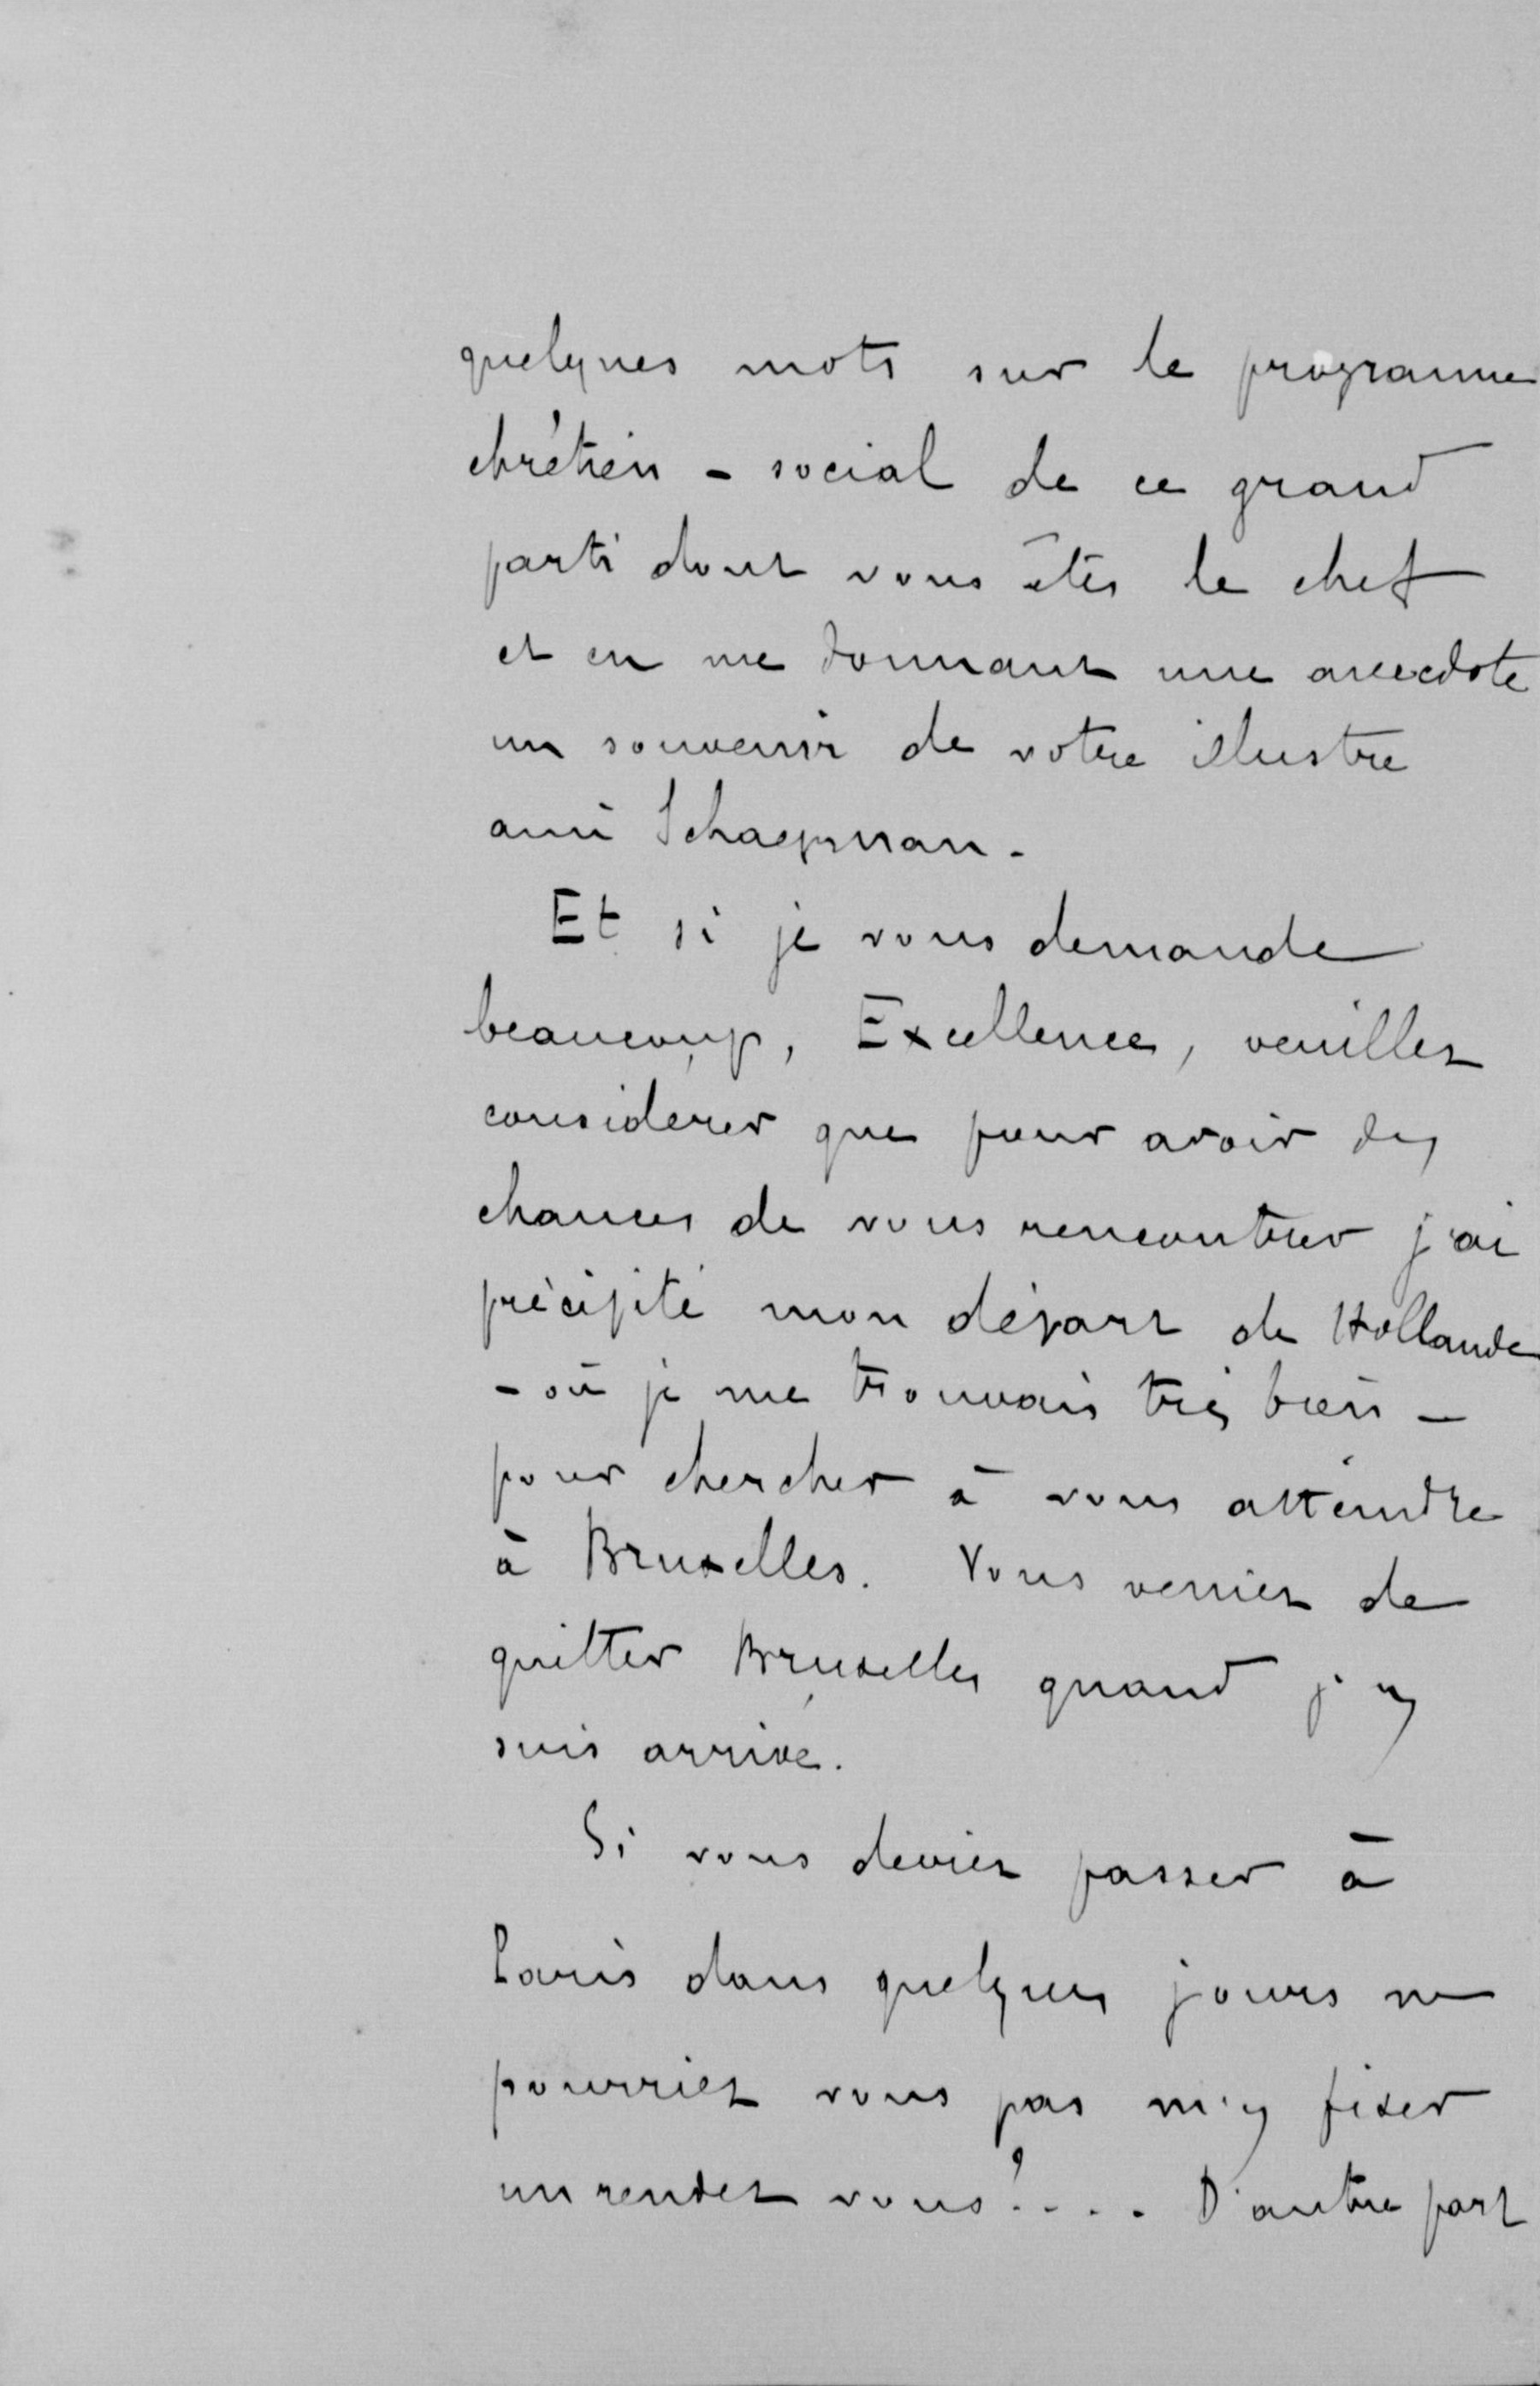 quelques mots sur le programme
chrétien - social de ce grand
parti dont vous êtes le chef
et en me donnant une anecdote
un souvenir de votre illustre
ami Schaepman.
Et si je vous demande
beaucoup, Excellence, veuillez
considerer que pour avoir des
chances de vous rencontrer j'ai
précipité mon départ de Hollande
- où je me trouvais très bien -
pour chercher à vous atteindre
à Bruxelles. Vous veniez de
quitter Bruxelles quand j'y
suis arrivé.
Si vous deviez passer à
Paris dans quelques jours ne
pourriez vous pas m'y fixer
un rendez vous?.... D'autre part